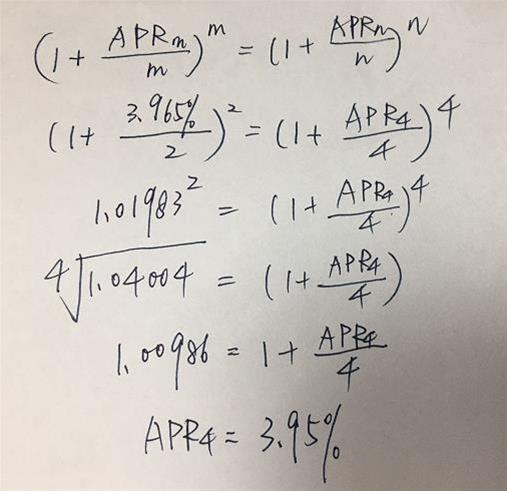 (1 + APRm/m)^m = (1 + APRn/n)^n
(1 + 3.965%/2)^2 = (1 + APR4/4)^4
1.01983^2 = (1 + APR4/4)^4
4√1.04004 = (1 + APR4/4)
1.00986 = 1 + APR4/4
APR4 = 3.95%